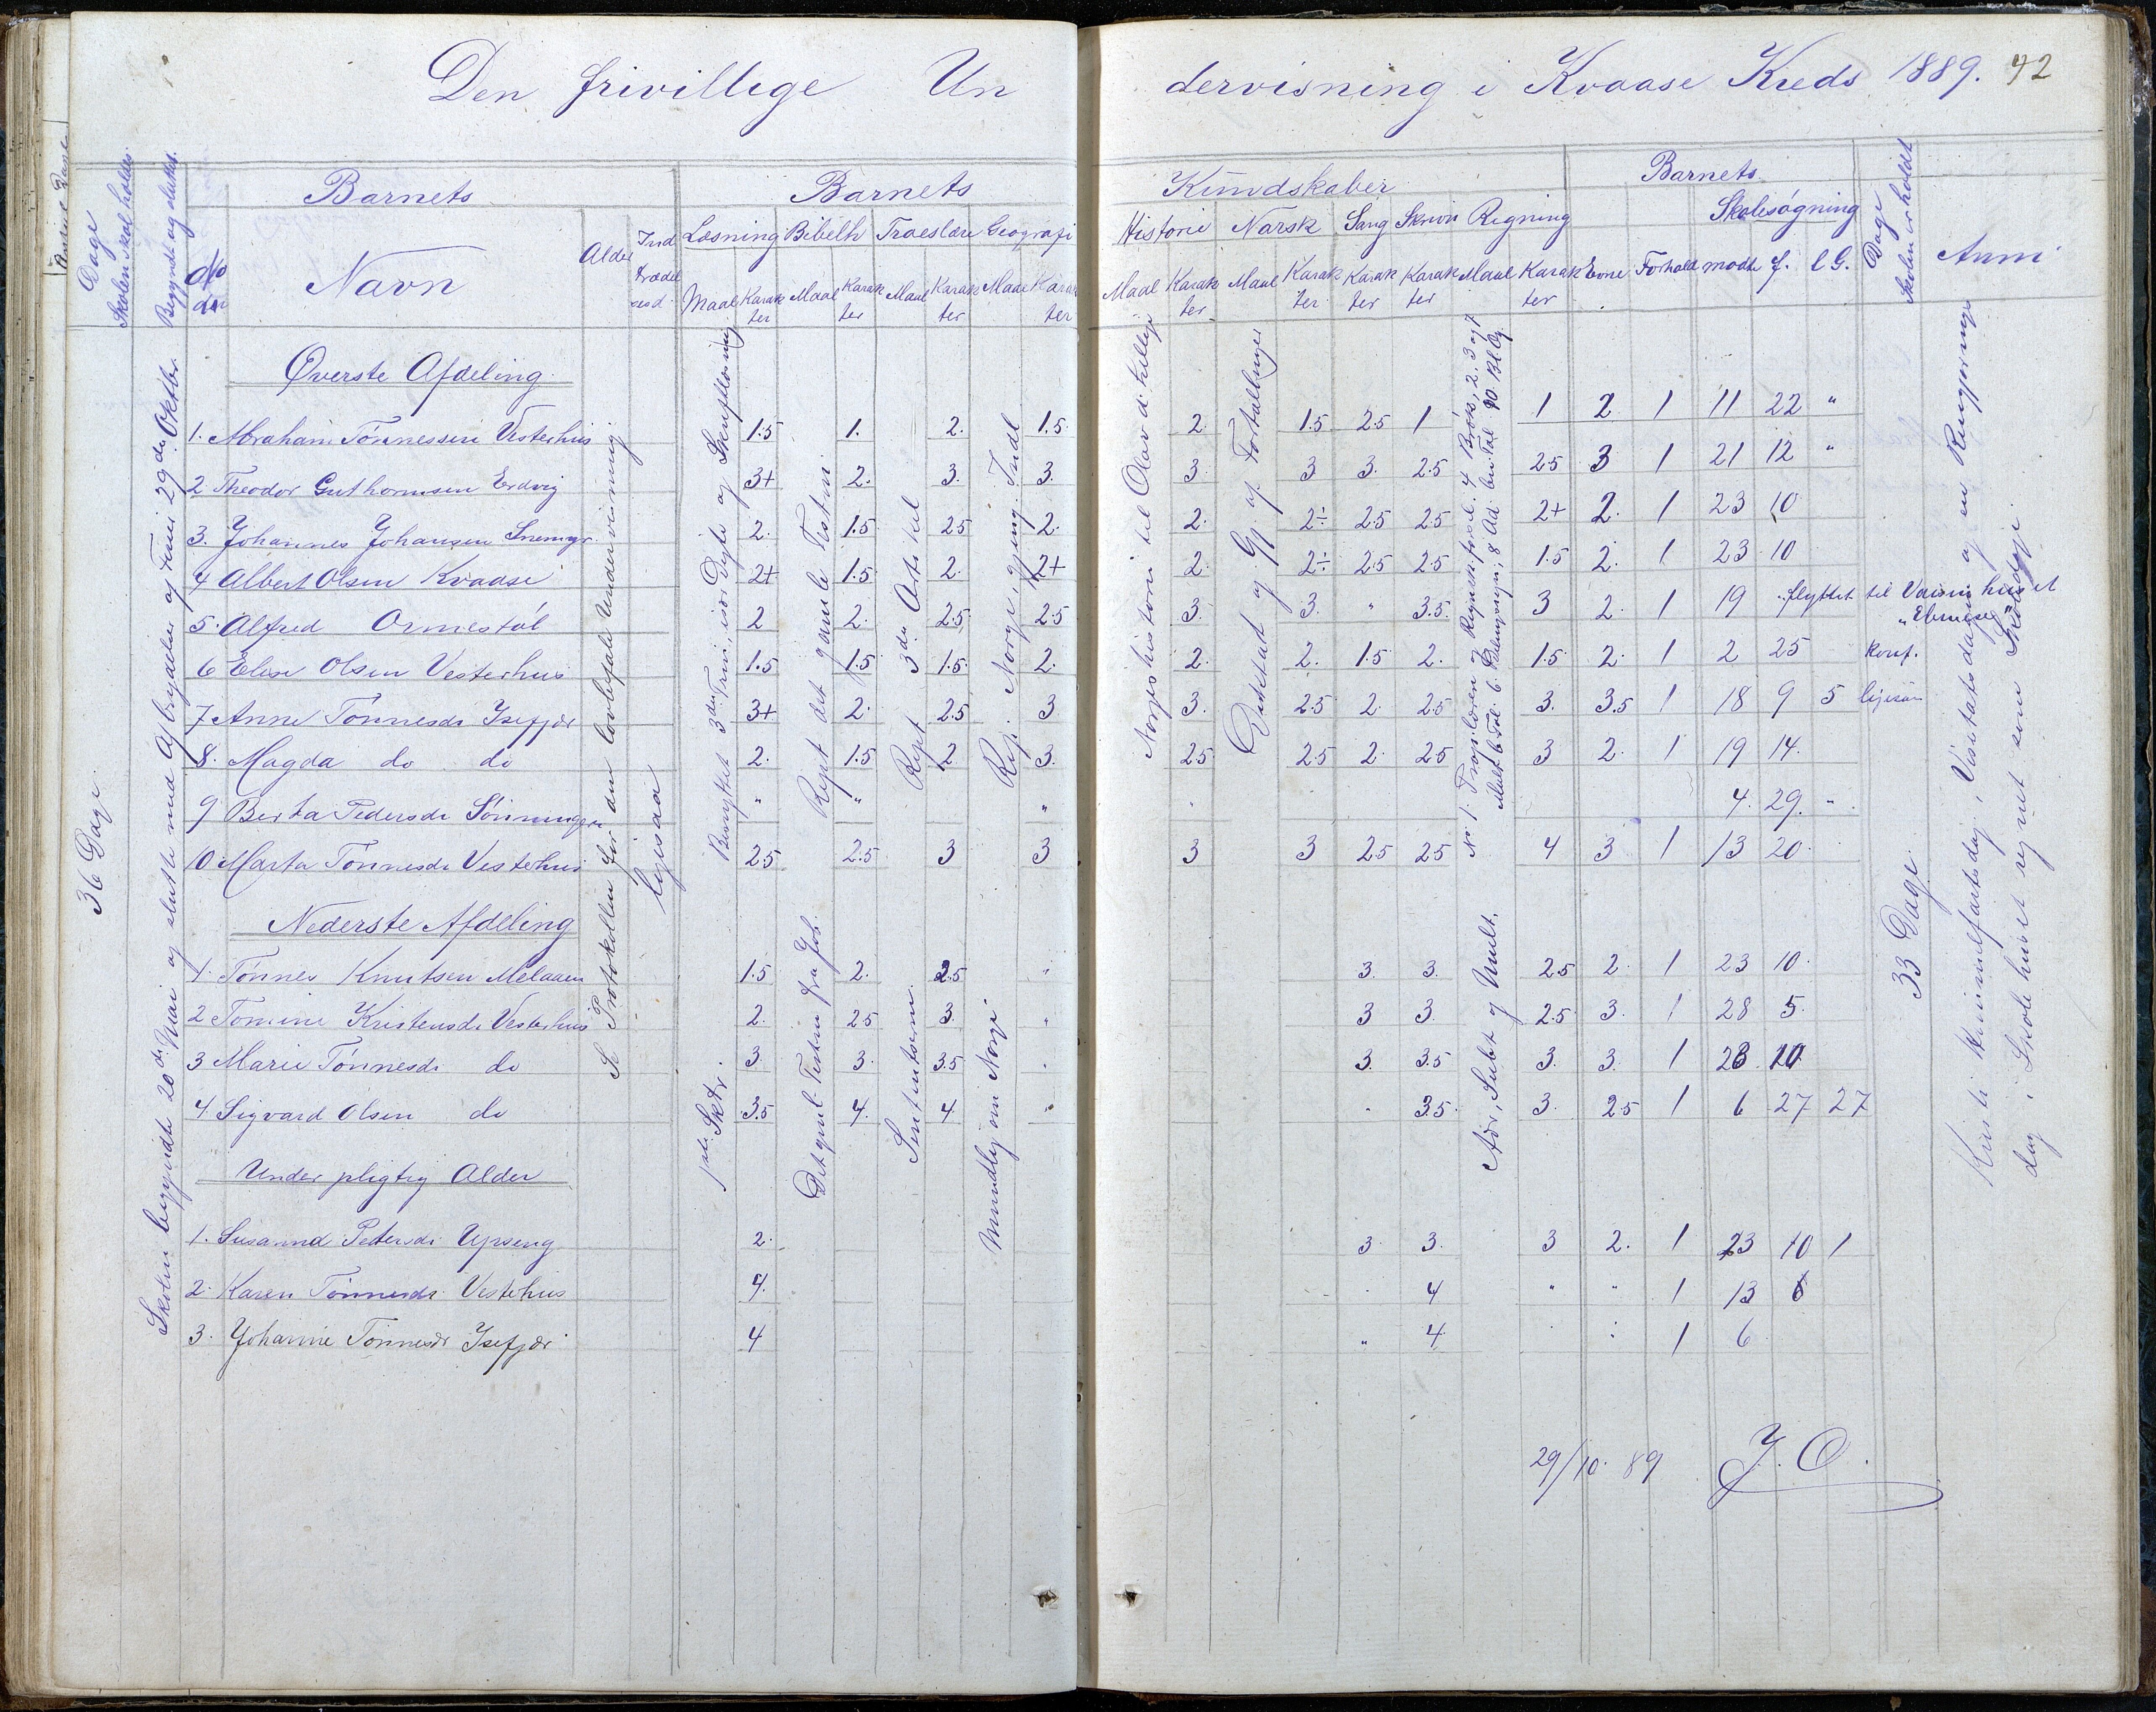 Den frivillige Undervisning i Kvaase Kreds 1889. 42
Antal Dage
Dage Skolen skal holdes.
Begyndt og sluttet.
No
Barnets
Navn
Alder
Indtrædelsesd.
Barnets Kundskaber
Læsning Bibelh Troeslære Geografi Historie Norsk Sang Skrivn Regning
Maal Karakter Maal Karakter Maal Karakter Maal Karakter Maal Karakter Maal Karakter Karakter Karakter Maal Karakter
Barnets
Evne Forhold Skolesøgning
mødte f. l G.
Dage Skolen er holdt
Anm
36 Dage.
Skolen begyndte 20de Mai og sluttede med Afbrydelse af Ferie 29de Oktbr.
Se Protokollen for den lovbefalte Undervisning
ligesaa
Øverste Afdeling
1. Abraham Tønnessen Vesterhus 1.5 1. 2. 1.5 2. 1.5 2.5 1 1 2 1 11 22 "
2. Theodor Guthormsen Erdvig 3+ 2. 3. 3. 3. 3 3. 2.5 2.5 3 1 21 12 "
3. Johannes Johansen 2. 1.5 2.5 2. 2. 2÷ 2.5 2.5 2+ 2. 1 23 10
4 Albert Olsen Kvaase 2+ 1.5 2. 2+ 2. 2÷ 2.5 2.5 1.5 2. 1 23 10
5. Alfred Ormestøl 2 2. 2.5 2.5 3. 3. " 3.5. 3 2. 1 19 flyttet til Vaisenhuset "Ebeneser"
6 Elise Olsen Vesterhus 1.5 1.5 1.5. 2. 2. 2. 1.5 2. 1.5 2. 1 2 25 konf.
7 Anne Tønnesdr Isefjær 3+ 2. 2.5 3 3. 2.5 2. 2.5 3. 3.5 1 18 9 5
8. Magda do do 2. 1.5 2 3. 2.5 2.5 2. 2.5 3 2. 1 19 14.
9 Berta Pedersdr " " " 4. 29. "
10 Marta Tønnesdr Vesterhus 2.5 2.5 3 3 3 3 2.5 2.5 4 3 1 13 20
Benyttet 3die Trin, især Digte og Skriftlæsning
Rept det gamle Testm.
Rept 3die Artikel
Rep. Norge, gjeng. Indl
Norges historie til Olav d. hellige
Diktat og Gj af Fortællinger
Nederste Afdeling
1. Tønnes Knutsen Melaaen 1.5 2. 2.5 " 3. 3. 2.5 2. 1 23 10.
2 Tomine Kristensdr Vesterhus 2. 2.5 3. " 3 3. 2.5 3. 1 28 5.
3 Marie Tønnesdr do 3 3. 3.5 " 3. 3.5 3. 3. 1 23 10
4 Sigvard Olsen do 3.5 4. 4. " " 3.5 3. 2.5 1 6 27 27
Det gml. Testm fra Job.
Sententserne
Mundlig om Norge
Adr, Subt og Mult.
33 Dage.
Kristi Himmelfartsdag, Visitatsdagen og en Rengjøringsdag i Skolehuset regnet som Skoledage.
Under pligtig Alder
1. Susanna Pedersdr Upseng 2. 3 3. 3 2. 1 23 10 1
2. Karen Tønnesdr Vesterhus 4. " 4 " " 1 13 6
3. Johanne Tønnesdr Isefjær 4 " 4. 1 6
29/10. 89 J. O.